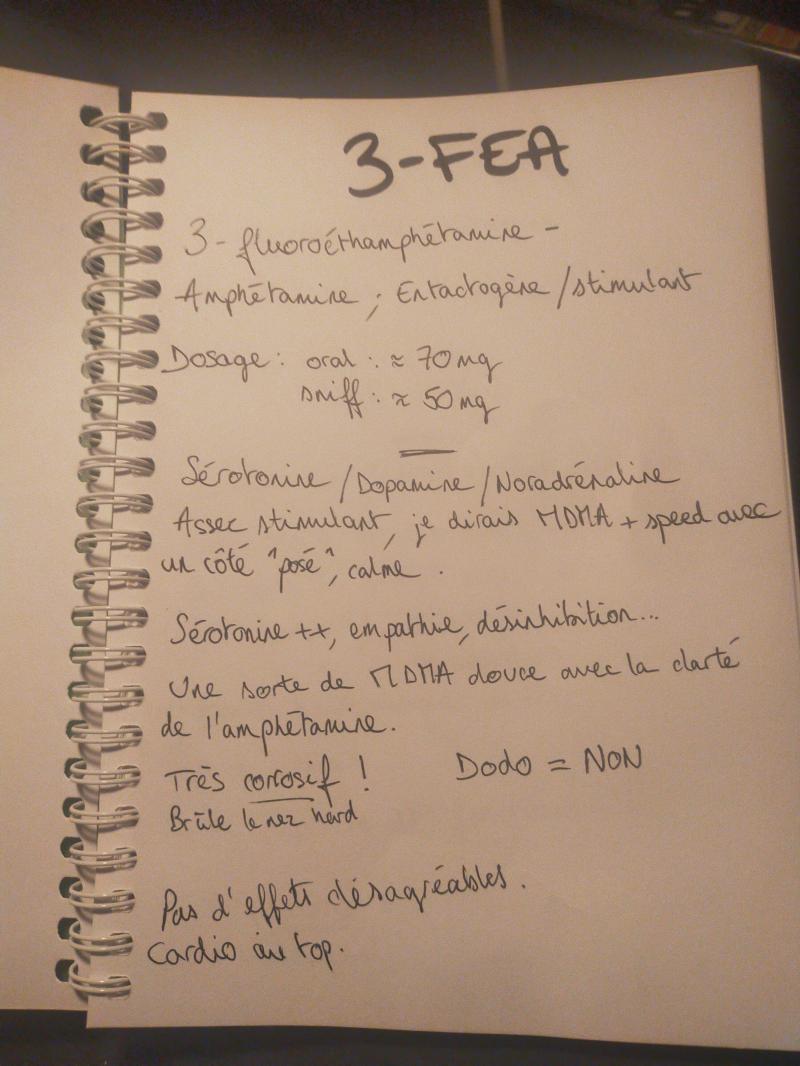 3-FEA
3-fluoroéthamphétamine -
Amphétamine ; Entactogène / stimulant
Dosage : oral : ≈ 70 mg
sniff : ≈ 50 mg
Sérotonine / Dopamine / Noradrénaline
Assec stimulant, je dirais MDMA + speed avec
un côté "posé", calme.
Sérotonine ++, empathie, désinhibition...
Une sorte de MDMA douce avec la clarté
de l'amphétamine.
Très corrosif ! Dodo = NON
Brûle le nez hard
Pas d'effets désagréables.
Cardio au top.